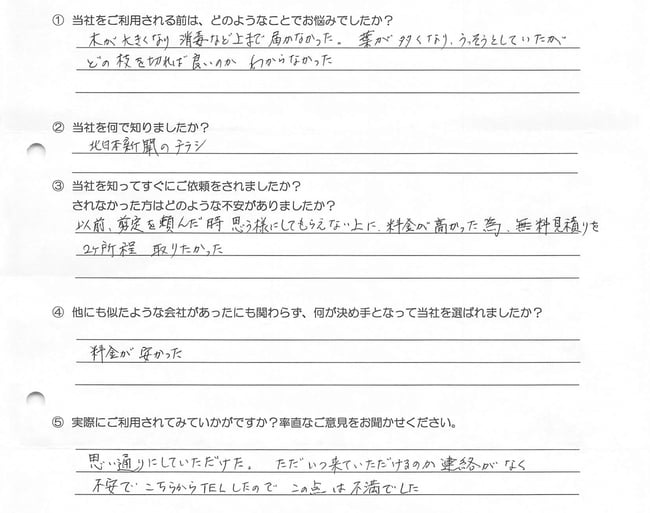 ① 当社をご利用される前は、どのようなことでお悩みでしたか？
木が大きくなり 消毒など上まで届かなかった。 葉が多くなり、うっそうとしていたが
どの枝を切れば良いのか わからなかった
② 当社を何で知りましたか？
北日本新聞のチラシ
③ 当社を知ってすぐにご依頼をされましたか？
されなかった方はどのような不安がありましたか？
以前、剪定を頼んだ時 思う様にしてもらえない上に、料金が高かった為、無料見積りを
2ヶ所程 取りたかった
④ 他にも似たような会社があったにも関わらず、何が決め手となって当社を選ばれましたか？
料金が 安かった
⑤ 実際にご利用されてみていかがですか？率直なご意見をお聞かせください。
思い通りにしていただけた。 ただいつ来ていただけるのか 連絡がなく
不安で こちらからTELしたので この点は不満でした